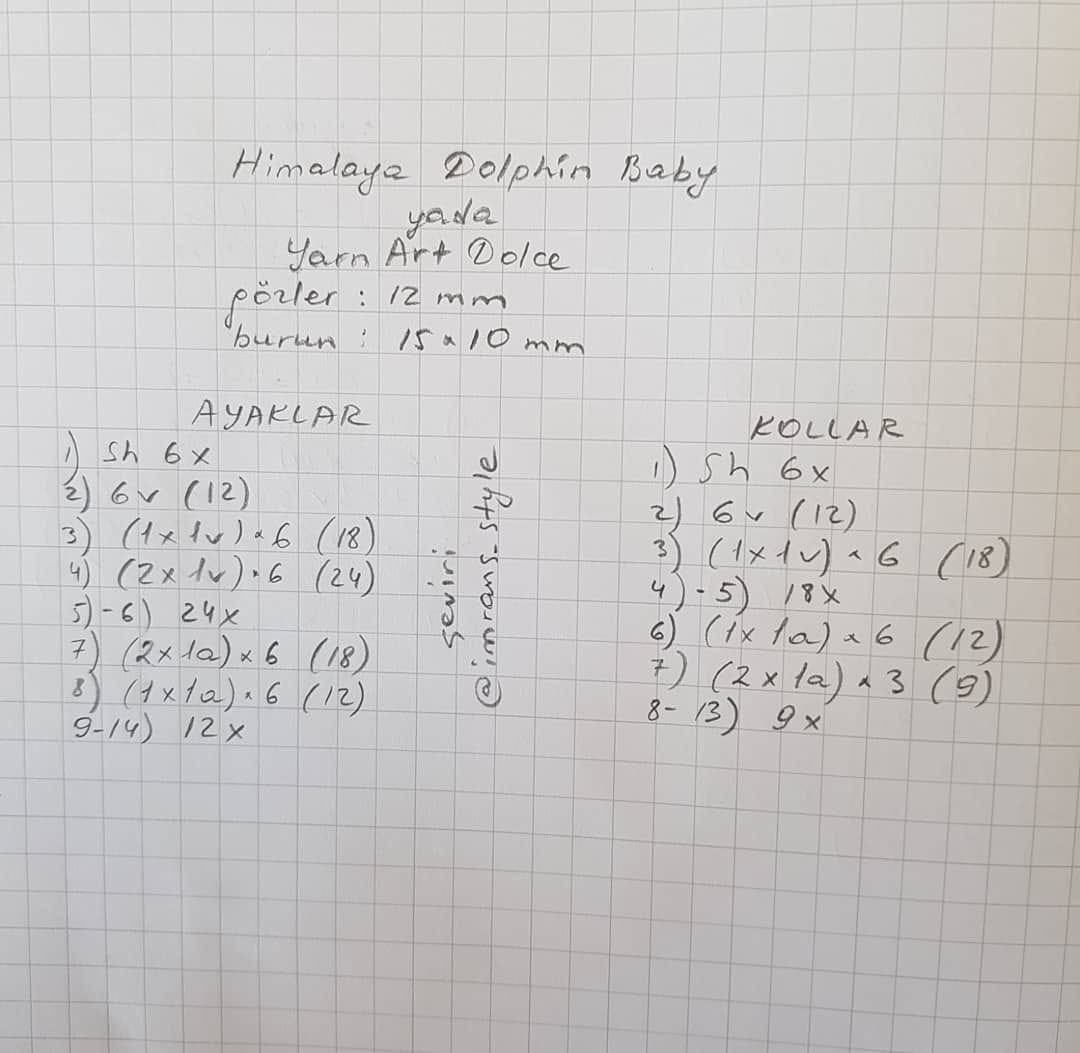 Himalaya Dolphin Baby
yada
Yarn Art Dolce
gözler : 12 mm
burun : 15x10 mm
AYAKLAR
1) Sh 6x
2) 6v (12)
3) (1x1v)x6 (18)
4) (2x1v)x6 (24)
5)-6) 24x
7) (2x1a)x6 (18)
8) (1x1a)x6 (12)
9-14) 12x
çeviri
@imrans_style
KOLLAR
1) Sh 6x
2) 6v (12)
3) (1x1v)x6 (18)
4)-5) 18x
6) (1x1a)x6 (12)
7) (2x1a)x3 (9)
8-13) 9x